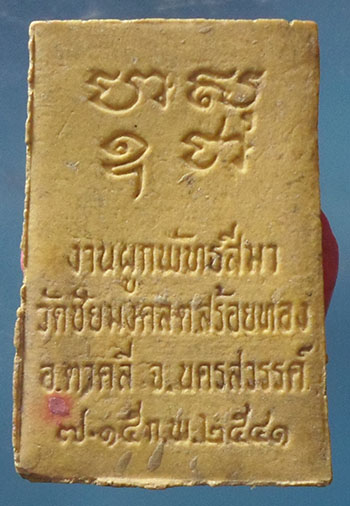 งานผูกพัทธสีมา
วัดชัยมงคล ต.สร้อยทอง
อ.ตาคลี จ.นครสวรรค์
๗-๑๕ ก.พ.๒๕๔๑